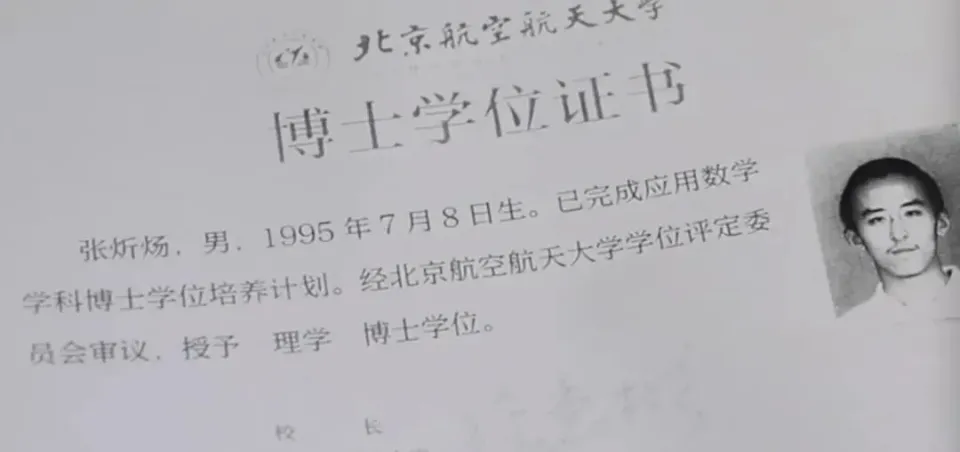 北京航空航天大学
博士学位证书
张炘炀，男，1995年7月8日生。已完成应用数学
学科博士学位培养计划。经北京航空航天大学学位评定委
员会审议，授予 理学 博士学位。
校 长